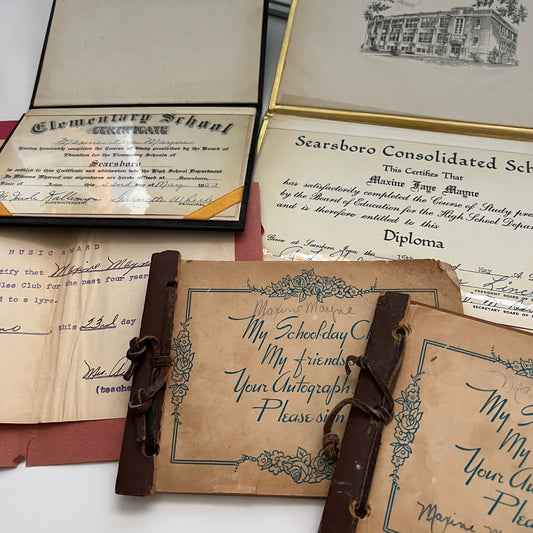 Elementary School
CERTIFICATE
Maxine Faye Mayne
Having honorably completed the Course of Study prescribed by the Board of
Education for the Elementary Schools of
Searsboro
is entitled to this Certificate and admission into the High School Department
In Witness Whereof our signatures are hereto affixed at Searsboro,
State of Iowa this 22nd day of May
SUPERINTENDENT
Searsboro Consolidated Sch
This Certifies That
Maxine Faye Mayne
has satisfactorily completed the Course of Study pres
by the Board of Education for the High School Depar
and is therefore entitled to this
Diploma
Given at Searsboro Iowa, this
PRESIDENT BOARD OF
SECRETARY BOARD OF
MUSIC AWARD
ify that Maxine Mayne
lee Club for the past four year
d to a lyre.
, this 23rd day
Mrs.
(teacher
Maxine Mayne
My Schoolday C
My friends
Your Autograph
Please sign
My S
My
Your A
Plea
Maxine M